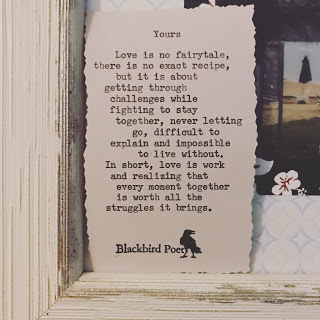 Yours
Love is no fairytale,
there is no exact recipe,
but it is about
getting through
challenges while
fighting to stay
together, never letting
go, difficult to
explain and impossible
to live without.
In short, love is work
and realizing that
every moment together
is worth all the
struggles it brings.
Blackbird Poet